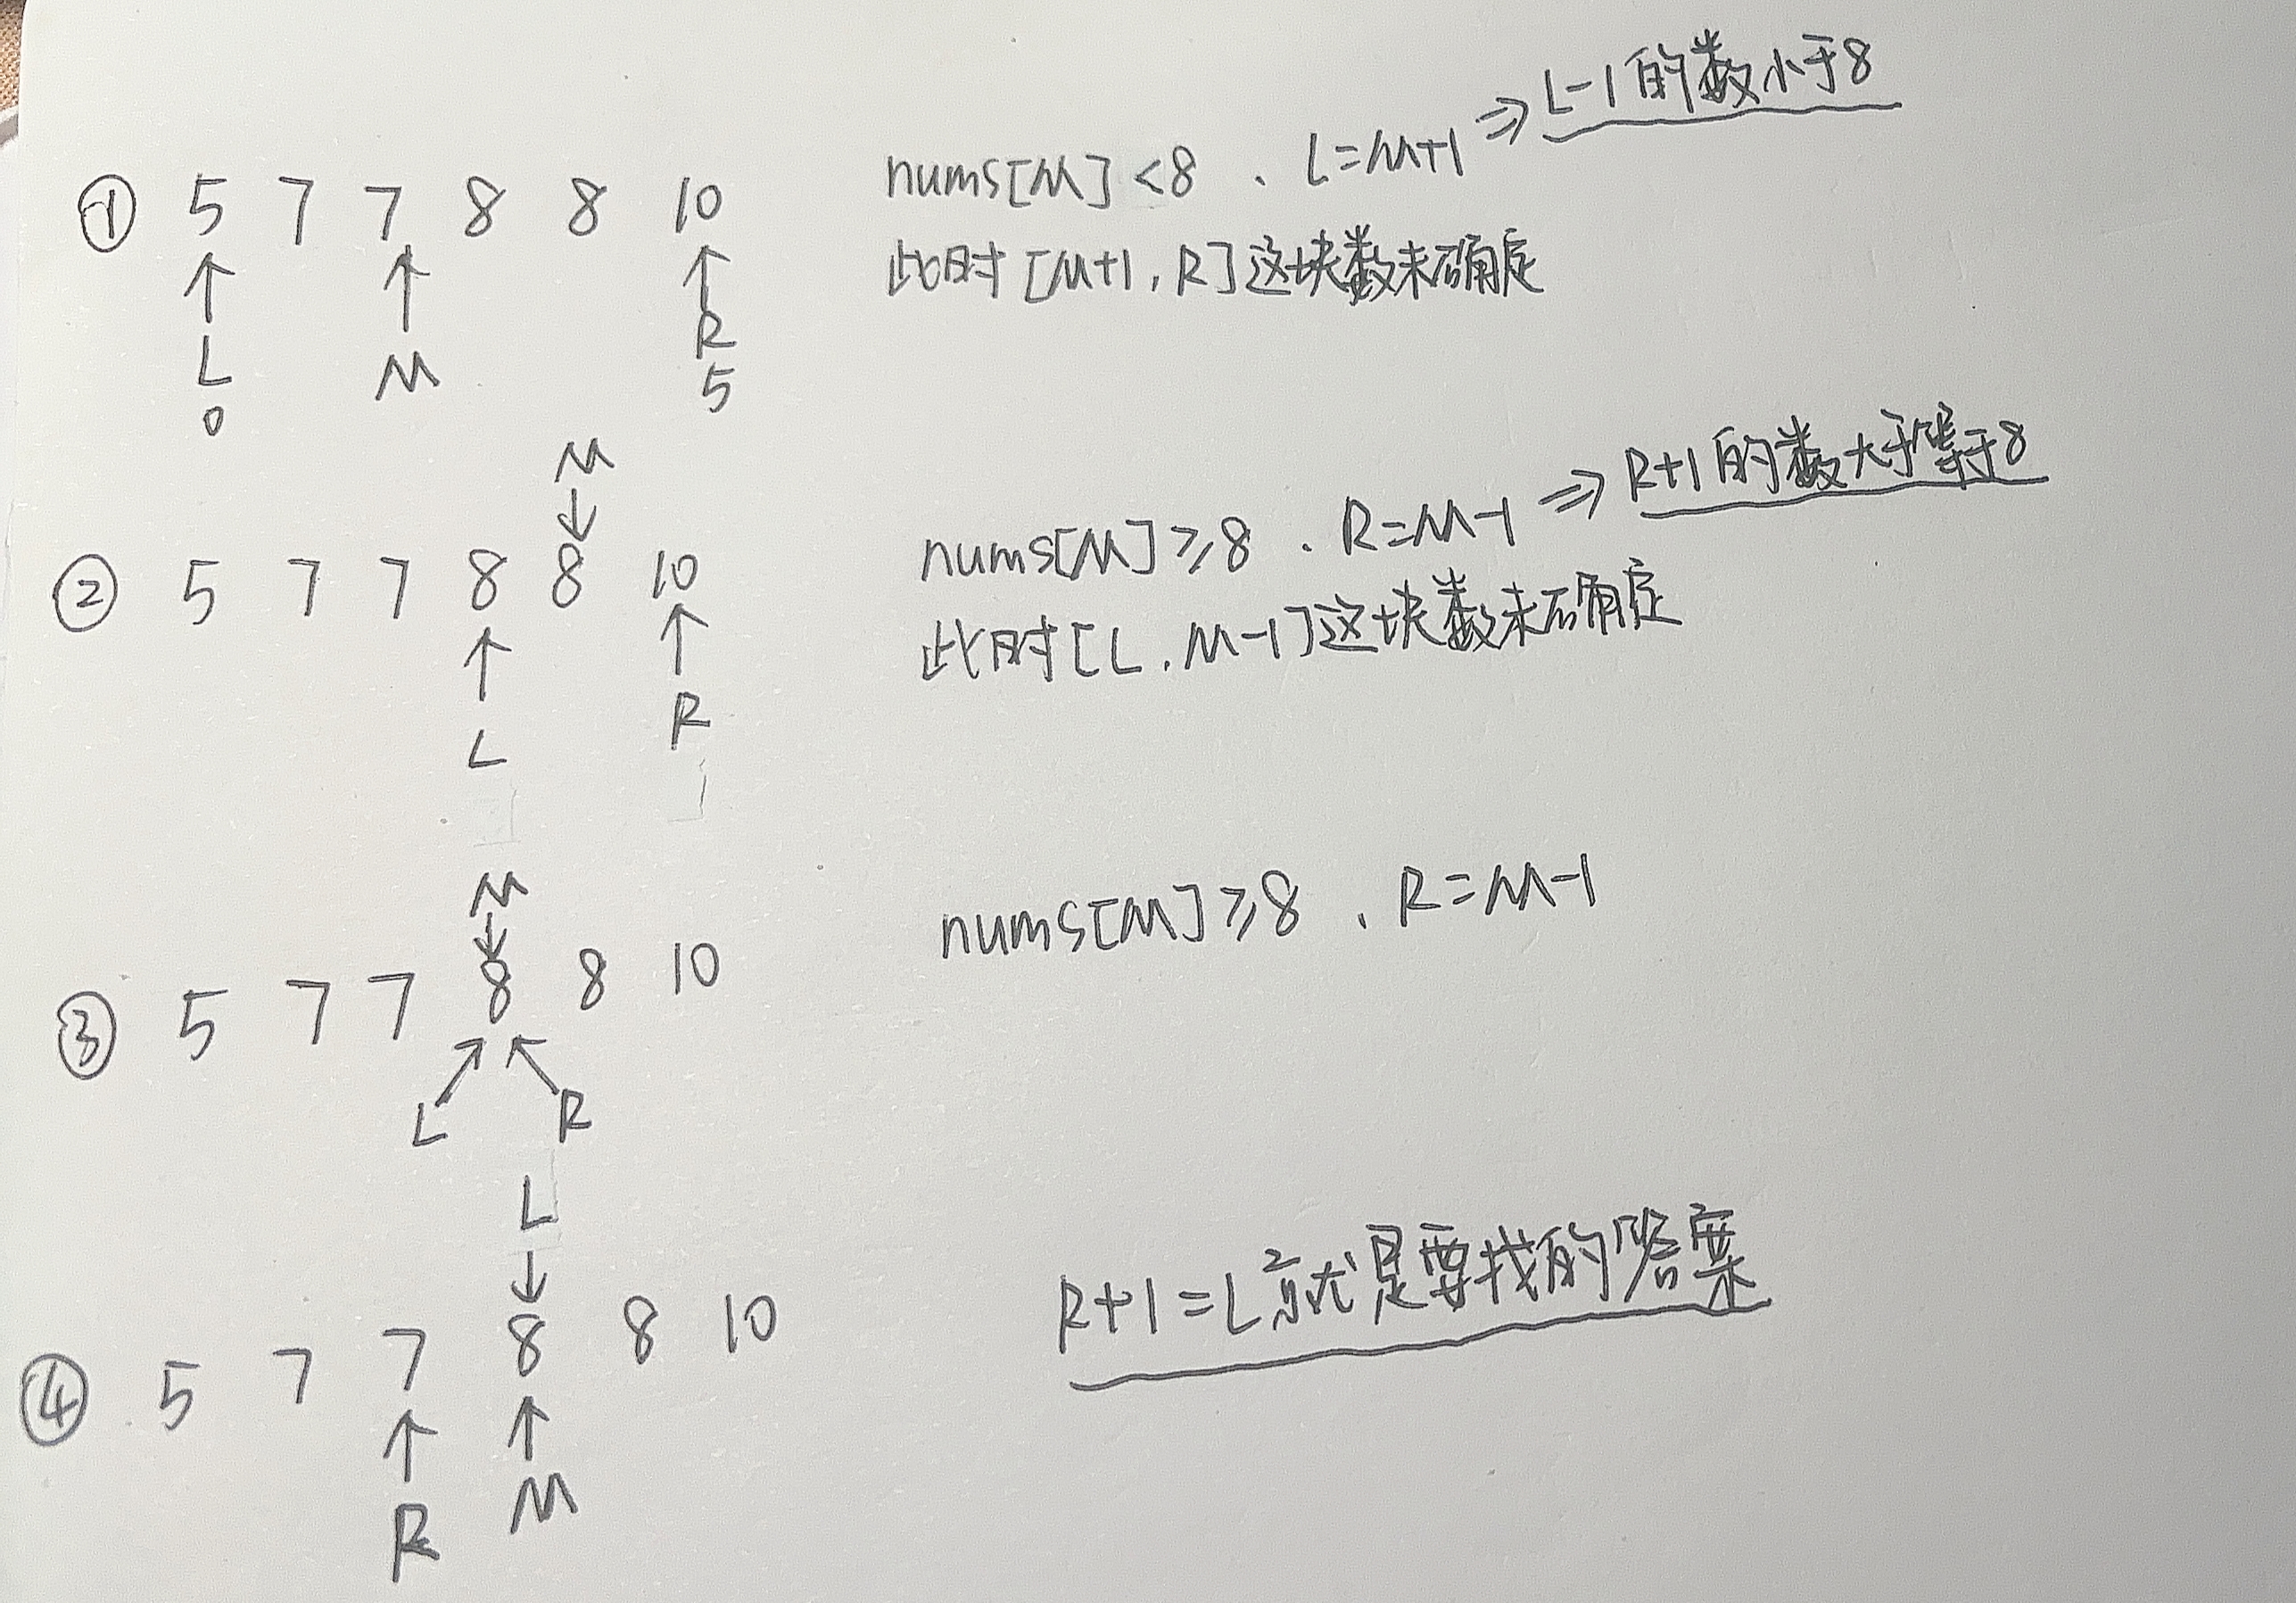 ① 5 7 7 8 8 10
↑ ↑ ↑
L M R
0 5
nums[M]<8 、 L=M+1 ⇒ L-1的数小于8
此时[M+1, R]这块数未确定
M
↓
② 5 7 7 8 8 10
↑ ↑
L R
nums[M]≥8 、 R=M-1 ⇒ R+1的数大于等于8
此时[L, M-1]这块数未确定
M
↓
③ 5 7 7 8 8 10
↗ ↖
L R
nums[M]≥8 、 R=M-1
L
↓
④ 5 7 7 8 8 10
↑ ↑
R M
R+1=L就是要找的答案